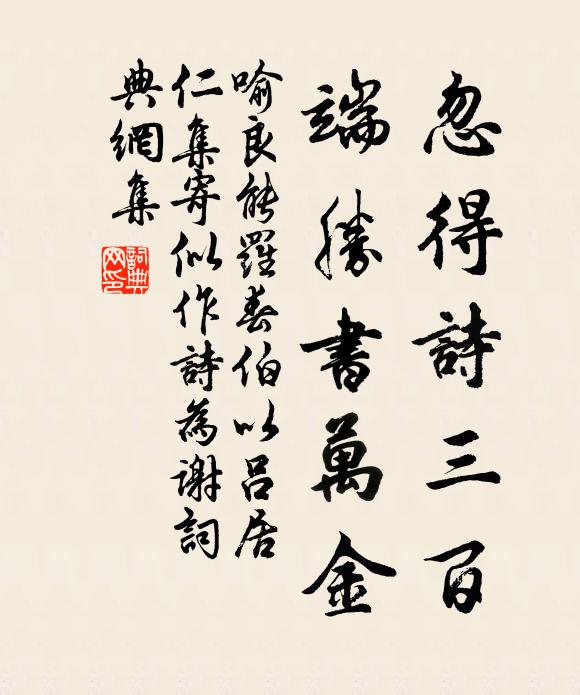 忽得詩三百
端勝書萬金
喻良能羅春伯以呂居
仁集寄似作詩為謝詞
典網集
詞典網印